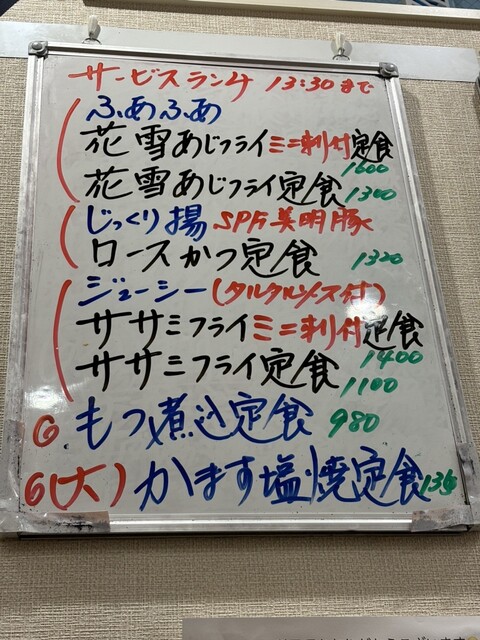 サービスランチ 13:30まで
ふあふあ
花雪あじフライミニ刺付定食
1600
花雪あじフライ定食 1300
じっくり揚 SPF美明豚
ロースかつ定食 1320
ジューシー(タルタルソース付)
ササミフライミニ刺付定食
1400
ササミフライ定食
1100
6 もつ煮込定食 980
6(大) かます塩焼定食